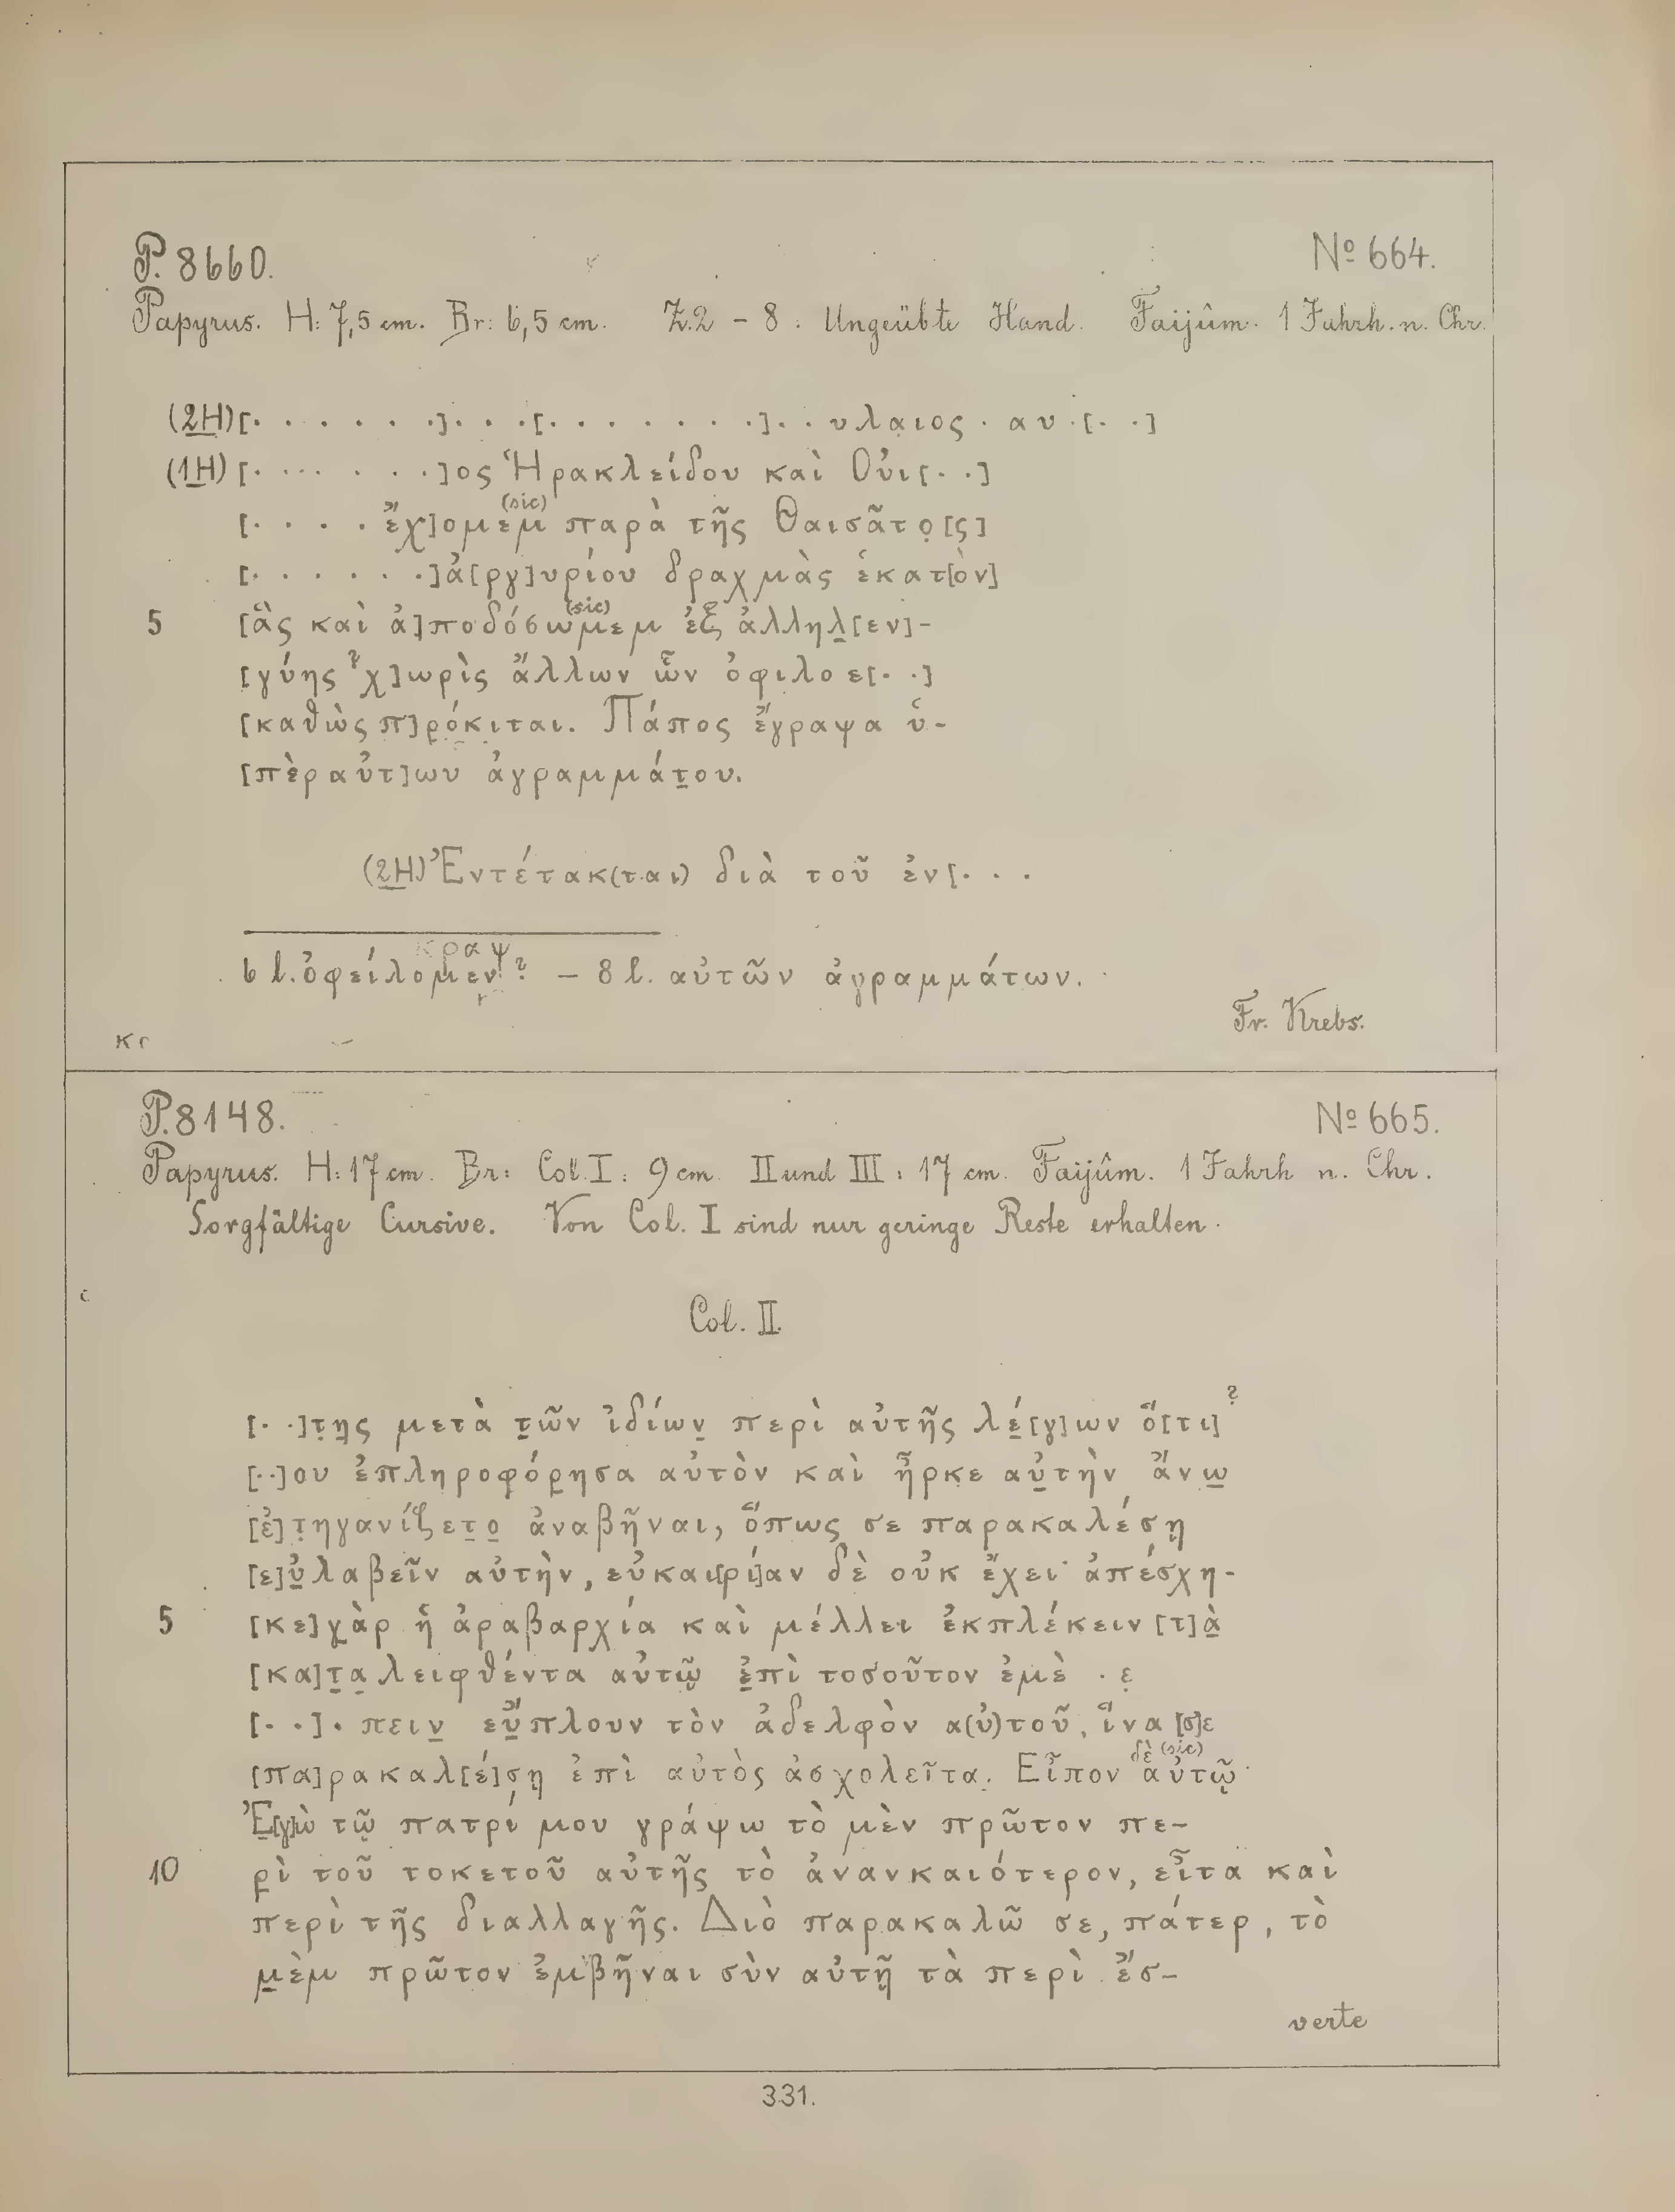 P. 8660. Nº 664.
Papyrus. H: 7,5 cm. Br: 6,5 cm. Z. 2 – 8 : Ungeübte Hand. Faijûm. 1 Jahrh. n. Chr.
(2H) [· · · · · · ·] · · · [· · · · · · · ·] · · υλαιος · αυ · [· ·]
(1H) [· · · · · · ·]ος Ἡρακλείδου καὶ Οὐι[· ·]
[· · · · ἔχ]ομεμ (sic) παρὰ τῆς Θαισᾶτο̣[ς]
[· · · · · · ·]ἀ[ργ]υρίου δραχμὰς ἑκατ[ὸν]
5 [ἃς καὶ ἀ]ποδόσωμεμ (sic) ἐξ ἀλληλ̣[εν]-
[γύης ? χ]ωρὶς ἄλλων ὧν ὀφιλο ε[· ·]
[καθὼς π]ρόκιται. Πάπος ἔγραψα ὑ-
[πὲρ αὐτ]ων ἀγραμμάτ̣ου.
(2H) Ἐντέτακ(ται) διὰ τοῦ ἐν[· · ·
6 l. ὀφείλομεν? – 8 l. αὐτῶν ἀγραμμάτων.
Fr. Krebs.
P. 8148. Nº 665.
Papyrus. H: 17 cm. Br: Col. I : 9 cm. II und III : 17 cm. Faijûm. 1 Jahrh n. Chr.
Sorgfältige Cursive. Von Col. I sind nur geringe Reste erhalten.
Col. II.
[· ·]τ̣η̣ς μετὰ τ̣ῶν ἰδίων̣ περὶ αὐτῆς λέ̣[γ]ων ὅ[τι] ?
[··]ου ἐπληροφόρησα αὐτὸν καὶ ἦρκε αὐ̣τὴν ἄνω̣
[ἐ]τ̣ηγανίζετ̣ο̣ ἀναβῆναι, ὅπως σε παρακαλέσῃ
[ε]ὐ̣λαβεῖν αὐτὴν, εὐκαι[ρί]αν δὲ οὐκ ἔχει· ἀπέσχη-
5 [κε] γὰρ ἡ ἀραβαρχία καὶ μέλλει ἐκπλέκειν [τ]ὰ̣
[κα]τ̣α̣λειφθέντα αὐτῷ ἐ̣πὶ τοσοῦτον ἐμὲ · ε̣
[· ·] · πειν̣ εὔ̣πλουν τὸν ἀδελφὸν α(ὐ)τοῦ, ἵνα [σ]ε
[πα]ρακαλ[έ]σῃ ἐπὶ αὐτὸς ἀσχολεῖτα. Εἶπον δὲ (sic) αὐτῷ·
Ἐ[γ]ὼ τῷ πατρί μου γράψω τὸ μὲν πρῶτον πε-
10 ρὶ τοῦ τοκετοῦ αὐτῆς τὸ ἀνανκαιότερον, εἶτα καὶ
περὶ τῆς διαλλαγῆς. Διὸ παρακαλῶ σε, πάτερ, τὸ
μ̣ὲμ πρῶτον ἐμβῆναι σὺν αὐτῇ τὰ περὶ ἔσ-
verte
331.